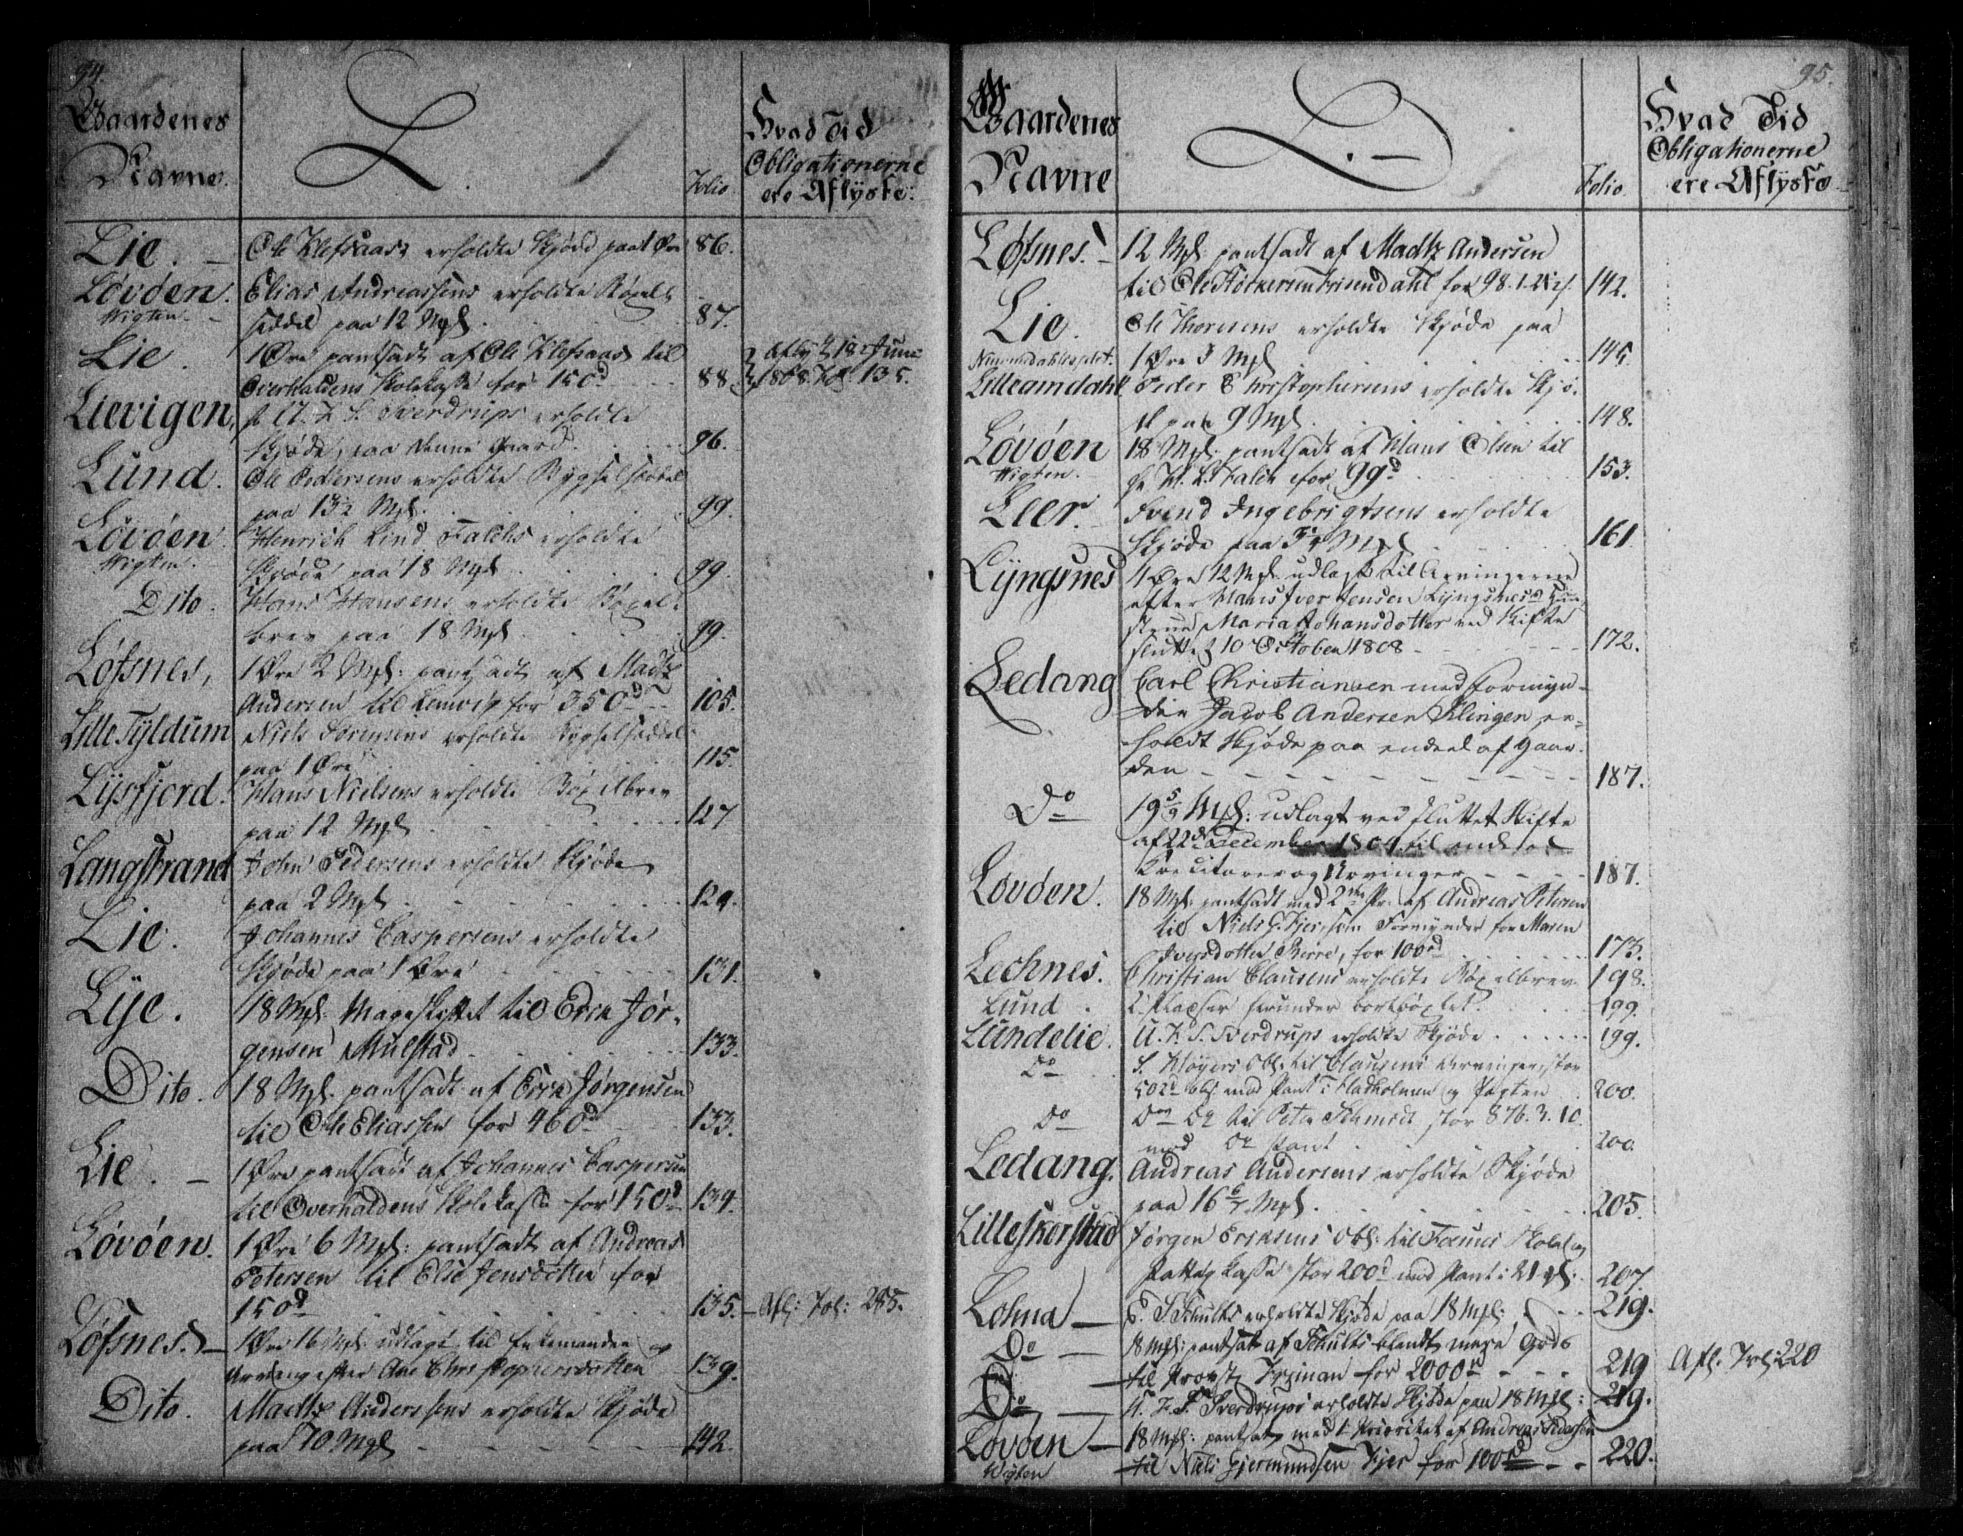 94.
Gaardenes
Navne.
L.
Folio
Hvad Tid
Obligationerne
ere Aflyste:
Lie. – Ole Klefsaas erholdte Skjøde paa 1 Øre 86.
Løvøen. Elias Andreassens erholdte Bøxel
Vigten. – seddel paa 12 Mpl. 87.
Lie. 1 Øre pantsadt af Ole Klefsaas til
Overhaldens Skolekasse for 150d 88.
Aflyst 18 Juni
1808. Fol. 135.
Lievigen, A. L. S. Sverdrups erholdte
Skjøde, paa denne Gaard. 96.
Lund. Ole Pedersens erholdte Bygselseddel
paa 13½ Mpl. 99.
Løvøen. Henrich Lind Falchs erholdte
Vigten. Skjøde paa 18 Mpl. 99.
Dito. Hans Hansens erholdte Bøxel-
brev paa 18 Mpl. 99.
Løfsnes, 1 Øre 2 Mpl: pantsadt af Madtz
Andersen til for 350d 105.
Lille Tyldum Niels Sørensens erholdte Bygselseddel
paa 1 Øre 115.
Lysfjord. Hans Nielsens erholdte Bøxelbrev
paa 12 Mpl. 127
Langstrand John Pedersens erholdte Skjøde
paa 2 Mpl. 129.
Lie. Johannes Caspersens erholdte
Skjøde paa 1 Øre 131.
Lye. 18 Mpl. Mageskiftet til Erik Jør-
gensen Mulstad 133.
Dito. 18 Mpl. pantsadt af Erik Jørgensen
til Ole Eliassen for 460d 133.
Lie. – 1 Øre pantsadt af Johannes Caspersen
til Overhaldens Skolekasse for 150d 134.
Løvøen. 1 Øre 6 Mpl: pantsadt af Andreas
Petersen til Else Jensdotter for
150d 135. – Afl: Fol: 285.
Løfsnes. – 1 Øre 16 Mpl. udlagt til Enkemanden og
Arvinger efter Ane Christophersdotter 139.
Dito. Madtz Anderssens erholdte Skjøde
paa 10 Mpl 142.
95.
Gaardenes
Navne
L. –
Folio.
Hvad Tid
Obligationerne
ere Aflyste
Løfsnes. – 12 Mpl. pantsadt af Madtz Andersen
til Ole Størkersen Brisendahl for 98. 142.
Lie. Ole Thoresens erholdte Skjøde paa
1 Øre 3 Mpl 145.
Lilleamdahl Peder Christophersens erholdte Skjø-
de paa 9 Mpl. 148.
Løvøen 18 Mpl. pantsadt af Hans Olsen til
Vigten. H. L. Falch for 99d 153.
Leer. Svend Ingebrigtsens erholdte
Skjøde paa Mpl 161
Lyngsnes 1 Øre 12 Mpl. udlagt til Arvingerne
efter Hans Iver Jensen Lyngsnes og
Maria Johansdotter ved Skifte
sluttet 10 October 1808 172.
Ledang Carl Christiansen med Formyn-
der Jacob Andersen Klingen er-
holdt Skjøde paa endeel af Gaar-
den 187.
Do 19 5/9 Mpl: udlagt ved sluttet Skifte
af 22de December 1809 til endeel
Creditorer og Arvinger 187.
Løvøen. 18 Mpl: pantsadt med 2den Pr. af Andreas Petersen
til Niels G. Fjersen Formynder for Maren
Iversdotter Bierre, for 100rd 173.
Lechnes. Christian Clausens erholdte Bøxelbrev 198.
Lund. 199.
Lundelie. U. F. S. Sverdrups erholdte Skjøde 199.
Do S. Kløyers Obl. til Clausens Arvinger, stor
med Pant i Fladholmen og Vegten 200.
Do til Peter Schmidt stor 876. 3. 10.
med do Pant 200.
Ledang. Andreas Andersens erholdte Skjøde
paa 16 6/7 Mpl. 205.
Lilleskorstad Jørgen Eriksens Obl: til Foesnes Skole og
Fattig Kasse stor 200d med Pant i 21 Mpl: 207.
Lohna – Schults erholdte Skjøde paa 18 Mpl: 219.
Do – 18 Mpl: pantsat af Schults blandt mere Gods
til Provst for 2000rd 219 Afl. Fol: 220
Do – F. S. Sverdrups erholdte Skjøde paa 18 Mpl: 219.
Løvøen – 18 Mpl: pantsat med 1 Prioritet af Andreas Pedersen
Vigten til Niels Gjermundsen Fjer for 100rd 220.